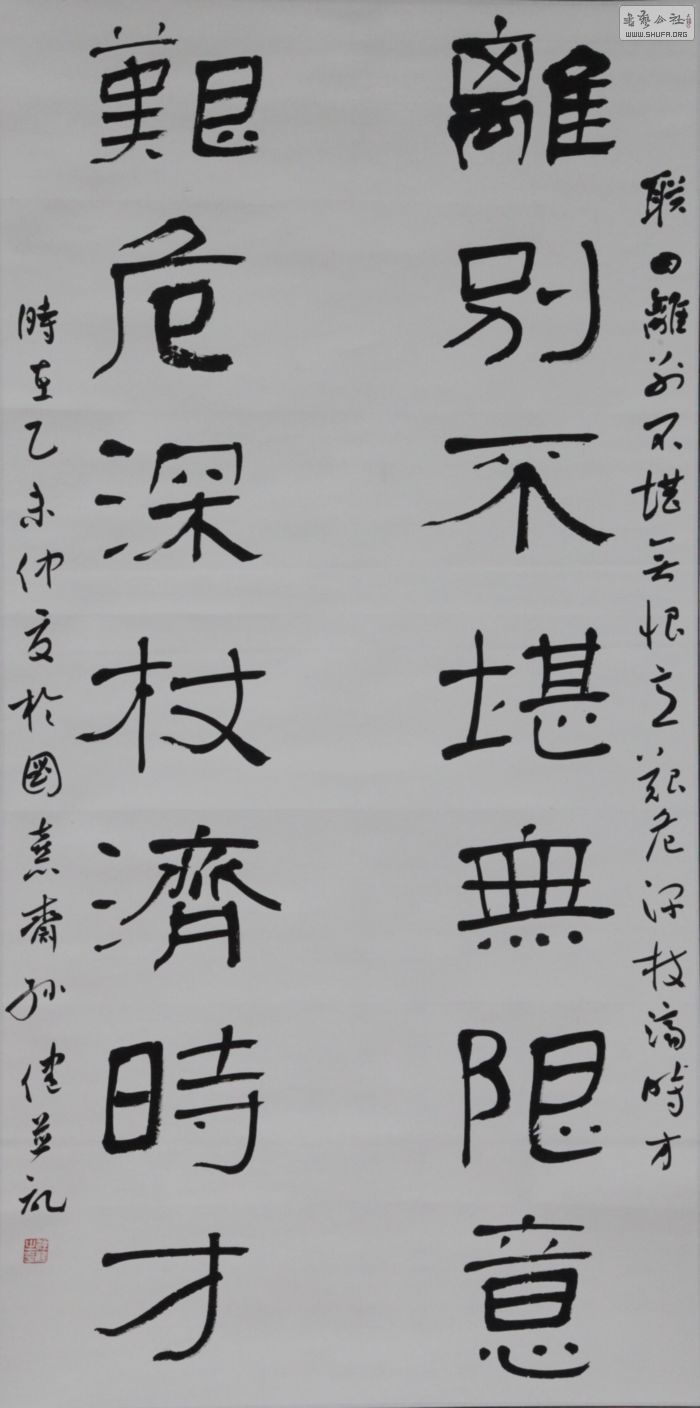 書藝公社
WWW.SHUFA.ORG
聯曰離別不堪無恨意艱危深杖濟時才
離別不堪無限意
艱危深杖濟時才
時在乙未仲夏於國熹齋孫健並記